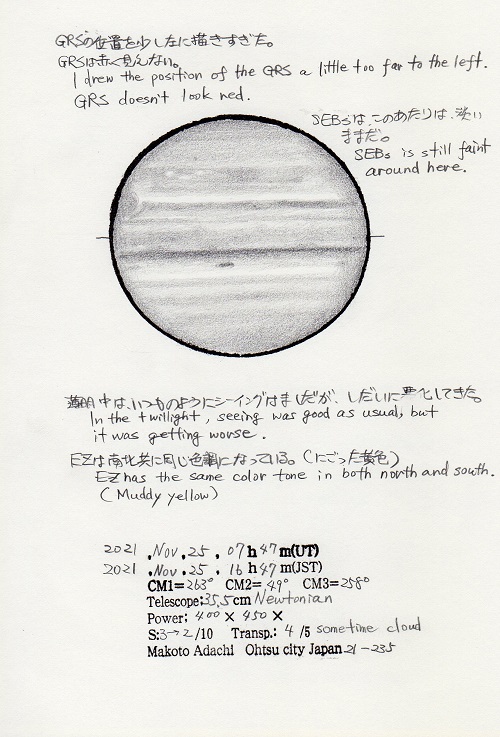 GRSの位置を少し左に描きすぎた。
GRSは赤く見えない。
I drew the position of the GRS a little too far to the left.
GRS doesn't look red.
SEBsは、このあたりは、淡い
ままだ。
SEBs is still faint
around here.
薄明中は、いつものようにシーイングはましだが、しだいに悪化してきた。
In the twillight, seeing was good as usual, but
it was getting worse.
EZは南北共に同じ色調になっている。(にごった黄色)
EZ has the same color tone in both north and south.
(Muddy yellow)
2021 .Nov.25. 07h47m(UT)
2021 .Nov.25. 16h47m(JST)
CM1=263° CM2=49° CM3=258°
Telescope:35.5cm Newtonian
Power; 400× 450×
S:3→2/10 Transp.: 4/5 sometime cloud
Makoto Adachi Ohtsu city Japan 21-235